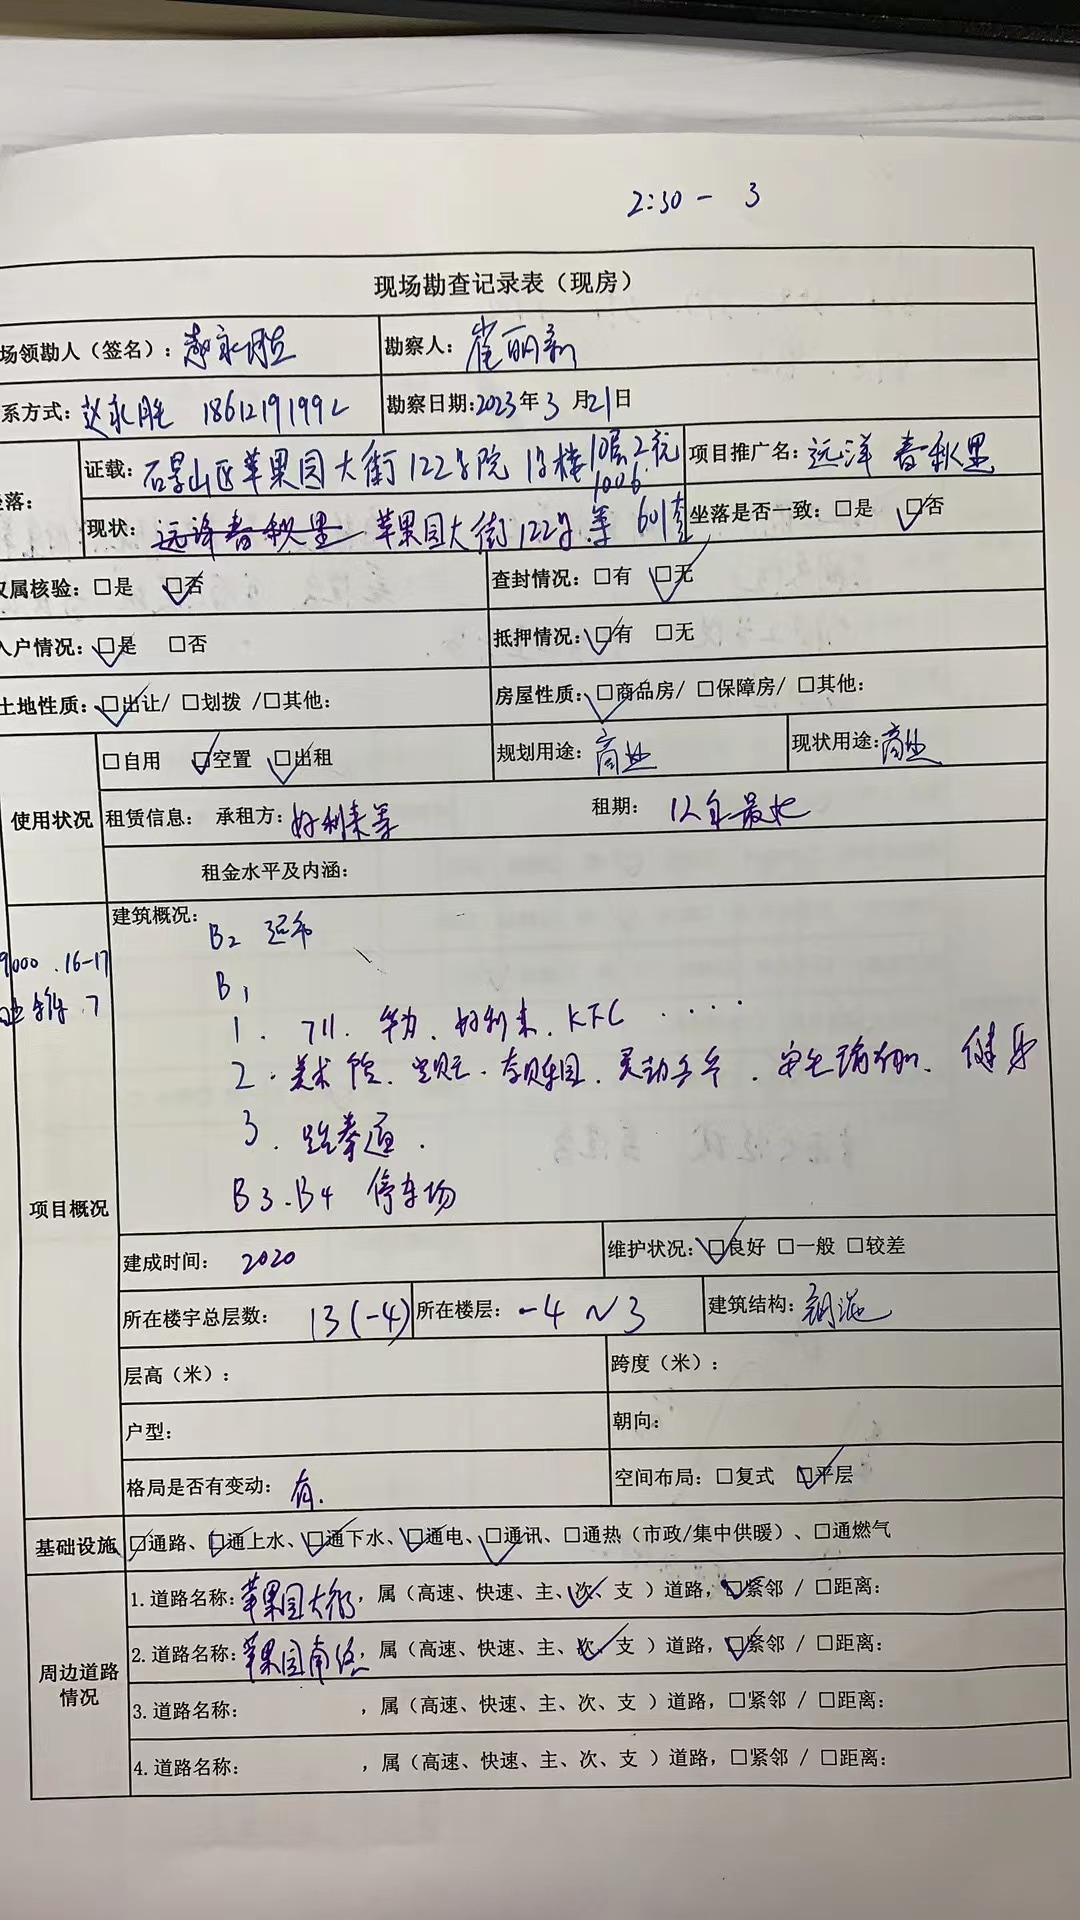 2:30 - 3
现场勘查记录表（现房）
场领勘人（签名）：赵永胜 勘察人：崔丽新
系方式：赵永胜 18612191992 勘察日期：2023年3月21日
坐落： 证载：石景山区苹果园大街122号院1号楼10层2元1006 项目推广名：远洋 春秋里
现状：远洋春秋里 苹果园大街122号 等601套 坐落是否一致：□是 ☑否
权属核验：□是 ☑否 查封情况：□有 ☑无
入户情况：☑是 □否 抵押情况：☑有 □无
土地性质：☑出让/ □划拨 /□其他： 房屋性质：☑商品房/ □保障房/ □其他：
使用状况 □自用 ☑空置 ☑出租 规划用途：商业 现状用途：商业
租赁信息： 承租方：好利来等 租期： 12年最长
租金水平及内涵：
项目概况 建筑概况：B2 超市
9000 .16-17
B1
1. 711. 华为. 好利来. KFC ....
2. 美术馆. 瑜伽. 健身
3. 跆拳道.
B3.B4 停车场
建成时间： 2020 维护状况：☑良好 □一般 □较差
所在楼宇总层数： 13(-4) 所在楼层：-4 ~ 3 建筑结构：钢混
层高（米）： 跨度（米）：
户型： 朝向：
格局是否有变动： 有. 空间布局：□复式 ☑平层
基础设施 ☑通路、☑通上水、☑通下水、☑通电、☑通讯、□通热（市政/集中供暖）、□通燃气
周边道路情况 1.道路名称：苹果园大街，属（高速、快速、主、次✓、支 ）道路，☑紧邻 / □距离：
2.道路名称：苹果园南路，属（高速、快速、主、次✓、支 ）道路，☑紧邻 / □距离：
3.道路名称： ，属（高速、快速、主、次、支 ）道路，□紧邻 / □距离：
4.道路名称： ，属（高速、快速、主、次、支 ）道路，□紧邻 / □距离：